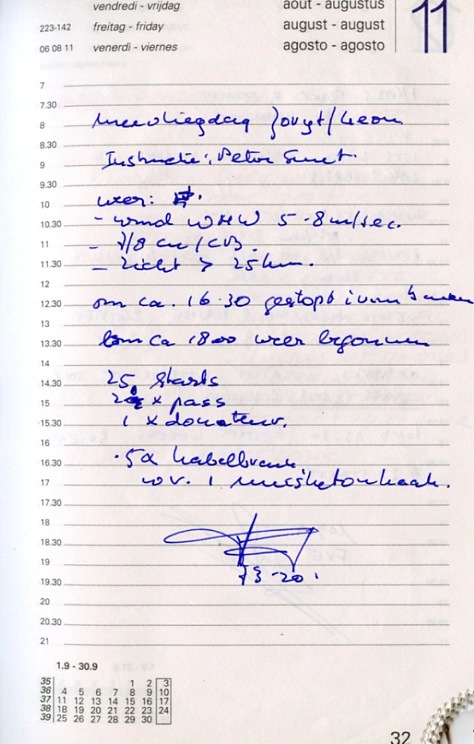 vendredi - vrijdag
223-142 freitag - friday
06 08 11 venerdì - viernes
août - augustus
august - august
agosto - agosto
11
7
7.30
8 Meevliegdag
8.30
9 Instructie: Peter
9.30
10 weer:
10.30 - wind WNW 5-8 m/sec.
11 - 7/8 cu/cb.
11.30 - zicht > 25 km.
12
12.30 om ca. 16.30 gestopt i.v.m.
13
13.30 om ca 1800 weer begonnen
14
14.30 25 starts
15 x pass
15.30 1 x donateur.
16
16.30 5x kabelbreuk
17 w.v. 1 musketonhaak.
17.30
18
18.30
19
19.30
20
20.30
21
1.9 - 30.9
35 1 2 3
36 4 5 6 7 8 9 10
37 11 12 13 14 15 16 17
38 18 19 20 21 22 23 24
39 25 26 27 28 29 30
32